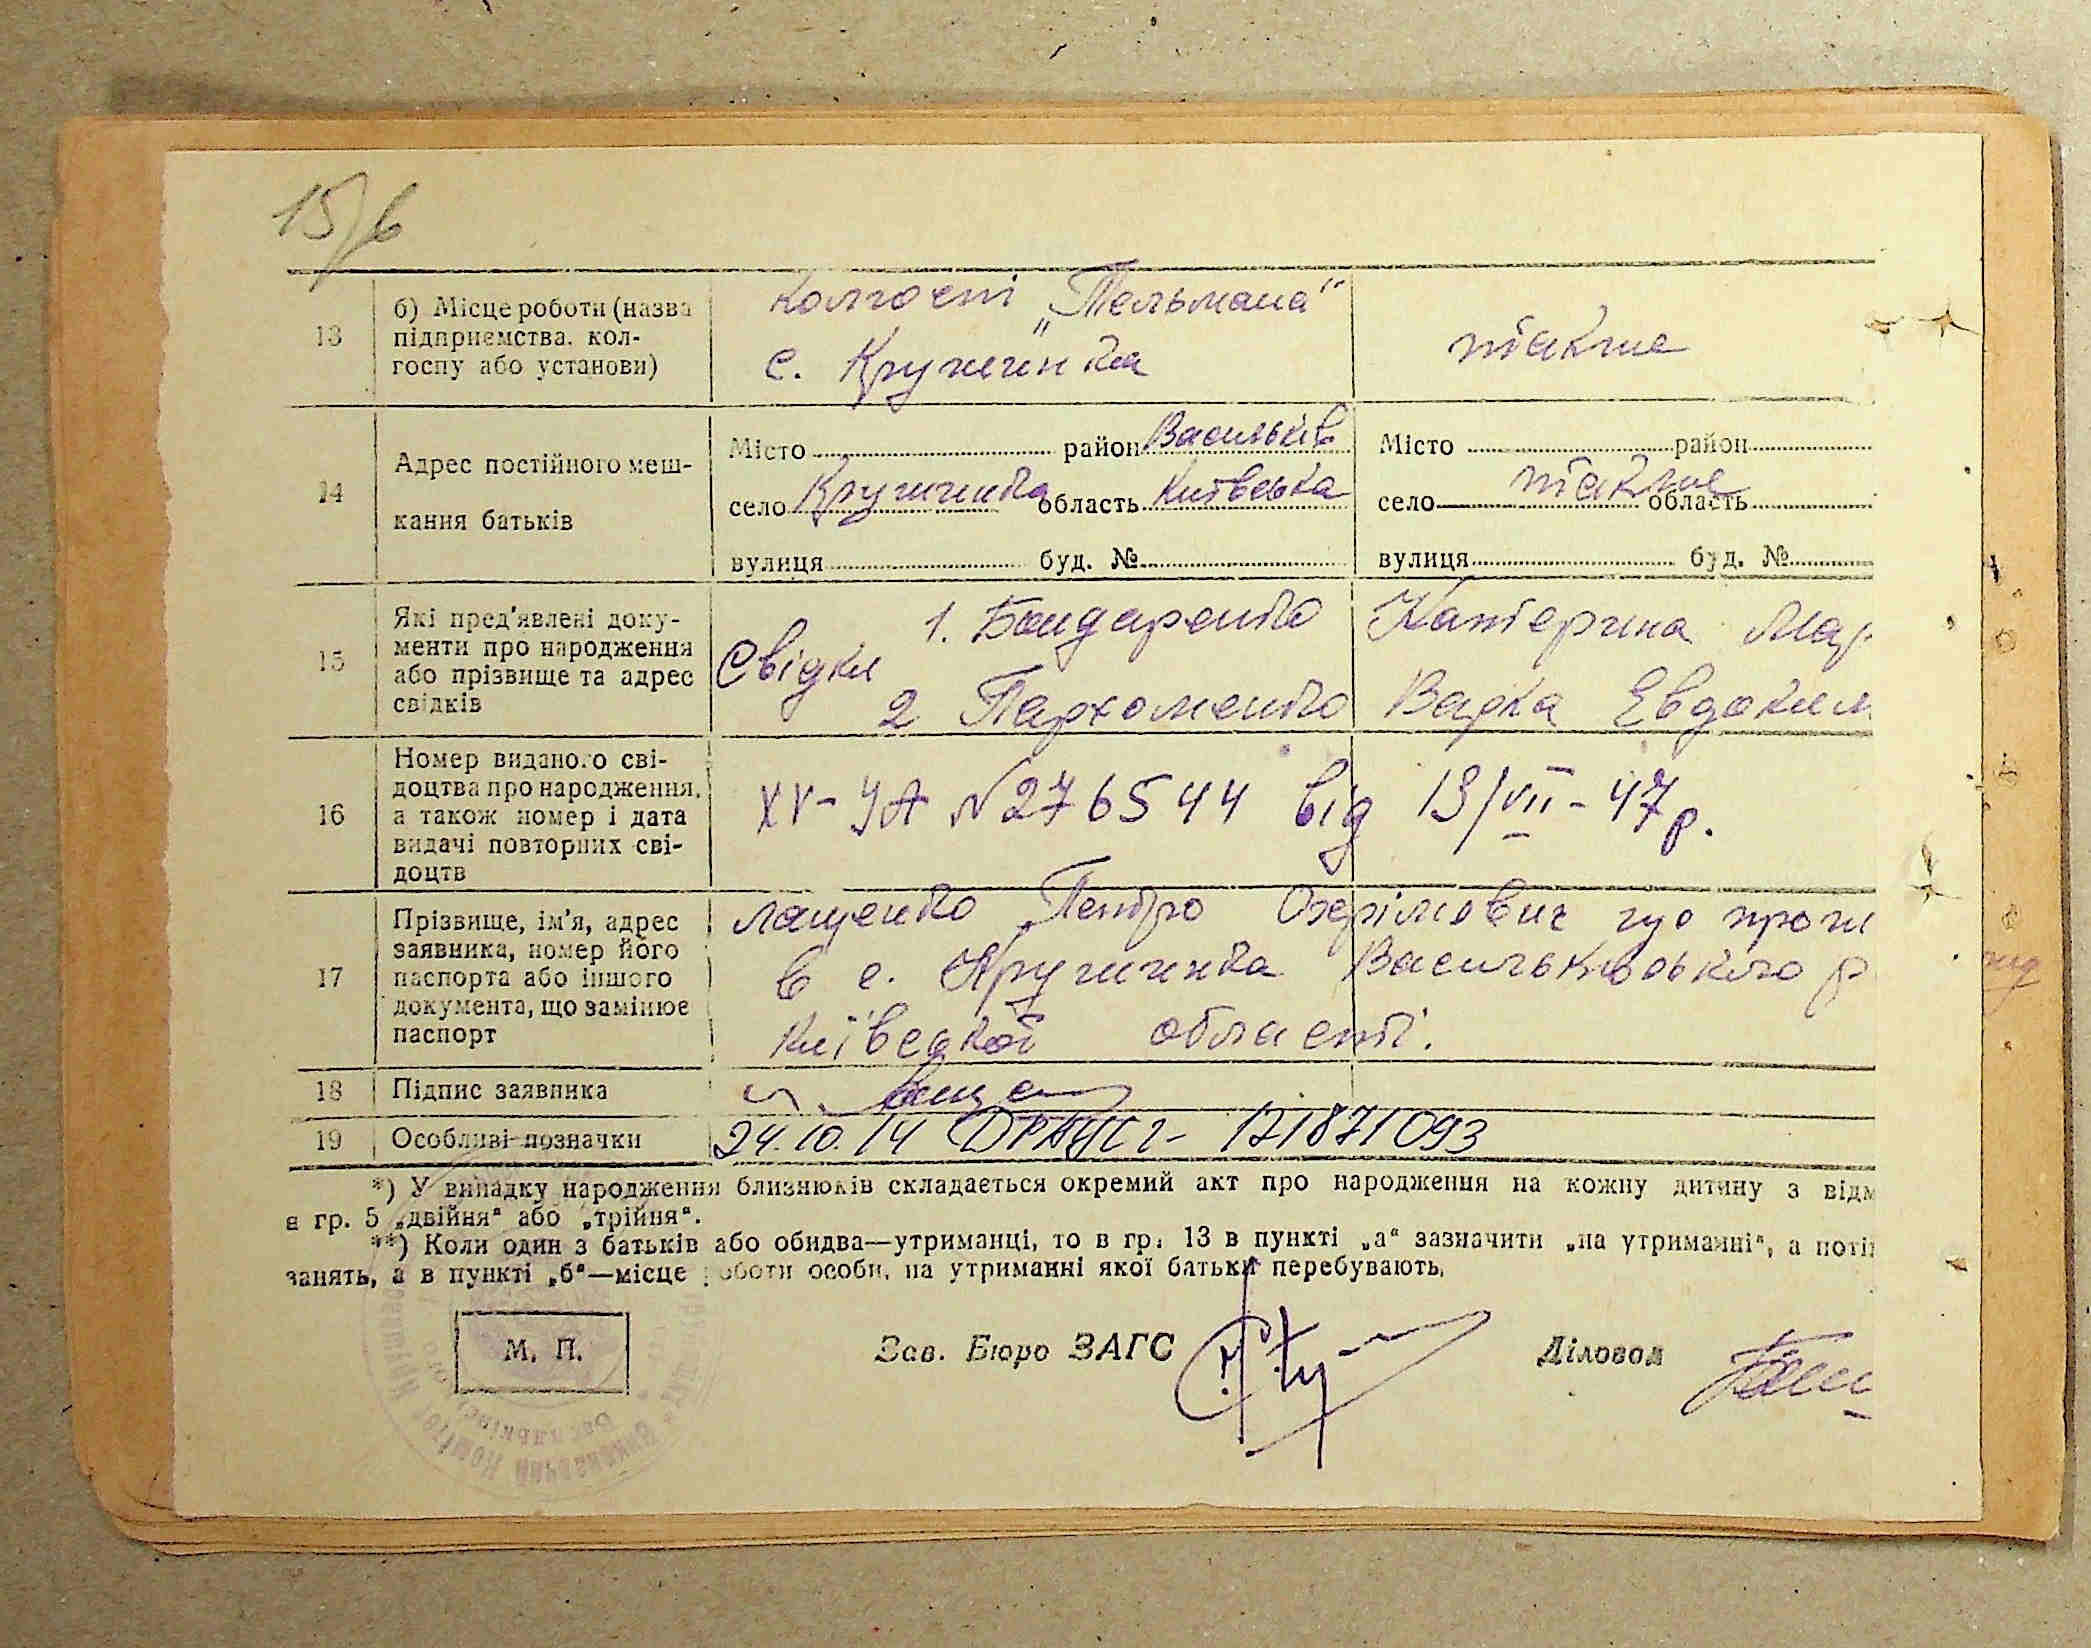 15/6
13
б) Місце роботи (назва
підприємства, кол-
госпу або установи)
колгоспі „Тельмана"
с. Кружчинка
также
14
Адрес постійного меш-
кання батьків
Місто район Васильків
село Кружчинка область Київська
вулиця буд. №
Місто район
село также область
вулиця буд. №
15
Які пред'явлені доку-
менти про народження
або прізвище та адрес
свідків
Свідки 1. Бондаренко Катерина Мар
2 Пархоменко Варка Евдоким
16
Номер виданого сві-
доцтва про народження,
а також номер і дата
видачі повторних сві-
доцтв
XV-УА №276544 від 13/VII-47р.
17
Прізвище, ім'я, адрес
заявника, номер його
паспорта або іншого
документа, що замінює
паспорт
Лащенко Петро Охрімович що прож
в с. Кружчинка Васильківського р
Київської області.
18
Підпис заявника
Лаще
19
Особливі позначки
24.10.14 ДРАЦСГ- 121871093
*) У випадку народження близнюків складається окремий акт про народження на кожну дитину з відм
в гр. 5 „двійня" або „трійня".
**) Коли один з батьків або обидва—утриманці, то в гр. 13 в пункті „а" зазначити „на утриманні", а поті
занять, а в пункті „б"—місце роботи особи, на утриманні якої батьки перебувають.
М. П.
Зав. Бюро ЗАГС
Діловод